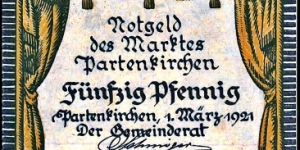 Notgeld
des Marktes
Partenkirchen
Fünfzig Pfennig
Partenkirchen, 1. März 1921
Der Gemeinderat